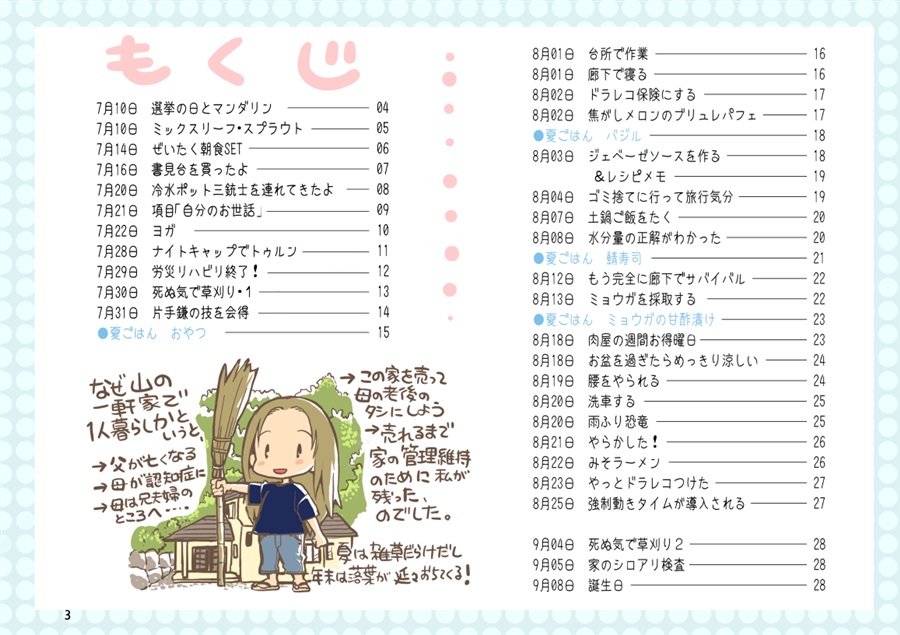 もくじ
7月10日 選挙の日とマンダリン 04
7月10日 ミックスリーフ・スプラウト 05
7月14日 ぜいたく朝食SET 06
7月16日 書見台を買ったよ 07
7月20日 冷水ポット三銃士を連れてきたよ 08
7月21日 項目「自分のお世話」 09
7月22日 ヨガ 10
7月28日 ナイトキャップでトゥルン 11
7月29日 労災リハビリ終了！ 12
7月30日 死ぬ気で草刈り・1 13
7月31日 片手鎌の技を会得 14
●夏ごはん おやつ 15
なぜ山の
一軒家で
1人暮らしかと
いうと、
→父が亡くなる
→母が認知症に
→母は兄夫婦の
ところへ‥‥
→この家を売って
母の老後の
タシにしよう
→売れるまで
家の管理維持
のために私が
残った、
のでした。
夏は雑草だらけだし
年末は落葉が延々おちてくる!
8月01日 台所で作業 16
8月01日 廊下で寝る 16
8月02日 ドラレコ保険にする 17
8月02日 焦がしメロンのブリュレパフェ 17
●夏ごはん バジル 18
8月03日 ジェベーゼソースを作る 18
＆レシピメモ 19
8月04日 ゴミ捨てに行って旅行気分 19
8月07日 土鍋ご飯をたく 20
8月08日 水分量の正解がわかった 20
●夏ごはん 鯖寿司 21
8月12日 もう完全に廊下でサバイバル 22
8月13日 ミョウガを採取する 22
●夏ごはん ミョウガの甘酢漬け 23
8月18日 肉屋の週間お得曜日 23
8月18日 お盆を過ぎたらめっきり涼しい 24
8月19日 腰をやられる 24
8月20日 洗車する 25
8月20日 雨ふり恐竜 25
8月21日 やらかした！ 26
8月22日 みそラーメン 26
8月23日 やっとドラレコつけた 27
8月25日 強制動きタイムが導入される 27
9月04日 死ぬ気で草刈り２ 28
9月05日 家のシロアリ検査 28
9月08日 誕生日 28
3